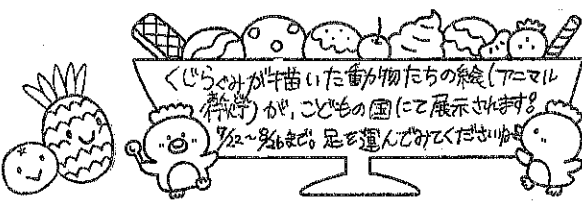 くじらぐみが描いた動物たちの絵(アニマル
)が、こどもの国にて展示されます。
7/22~8/26まで。足を運んでみてくださいね。